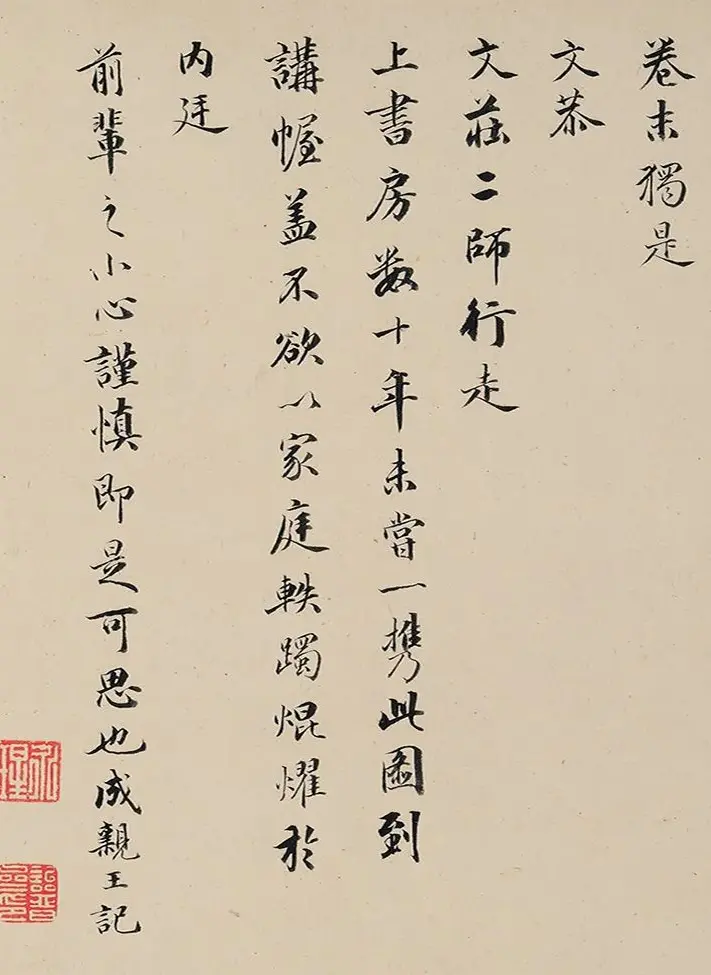 卷末獨是
文恭
文莊二師行走
上書房数十年未嘗一携此圖到
講幄盖不欲以家庭軼躅焜燿於
内廷
前輩之小心謹慎即是可思也成親王記
永瑆
詒晉齋印